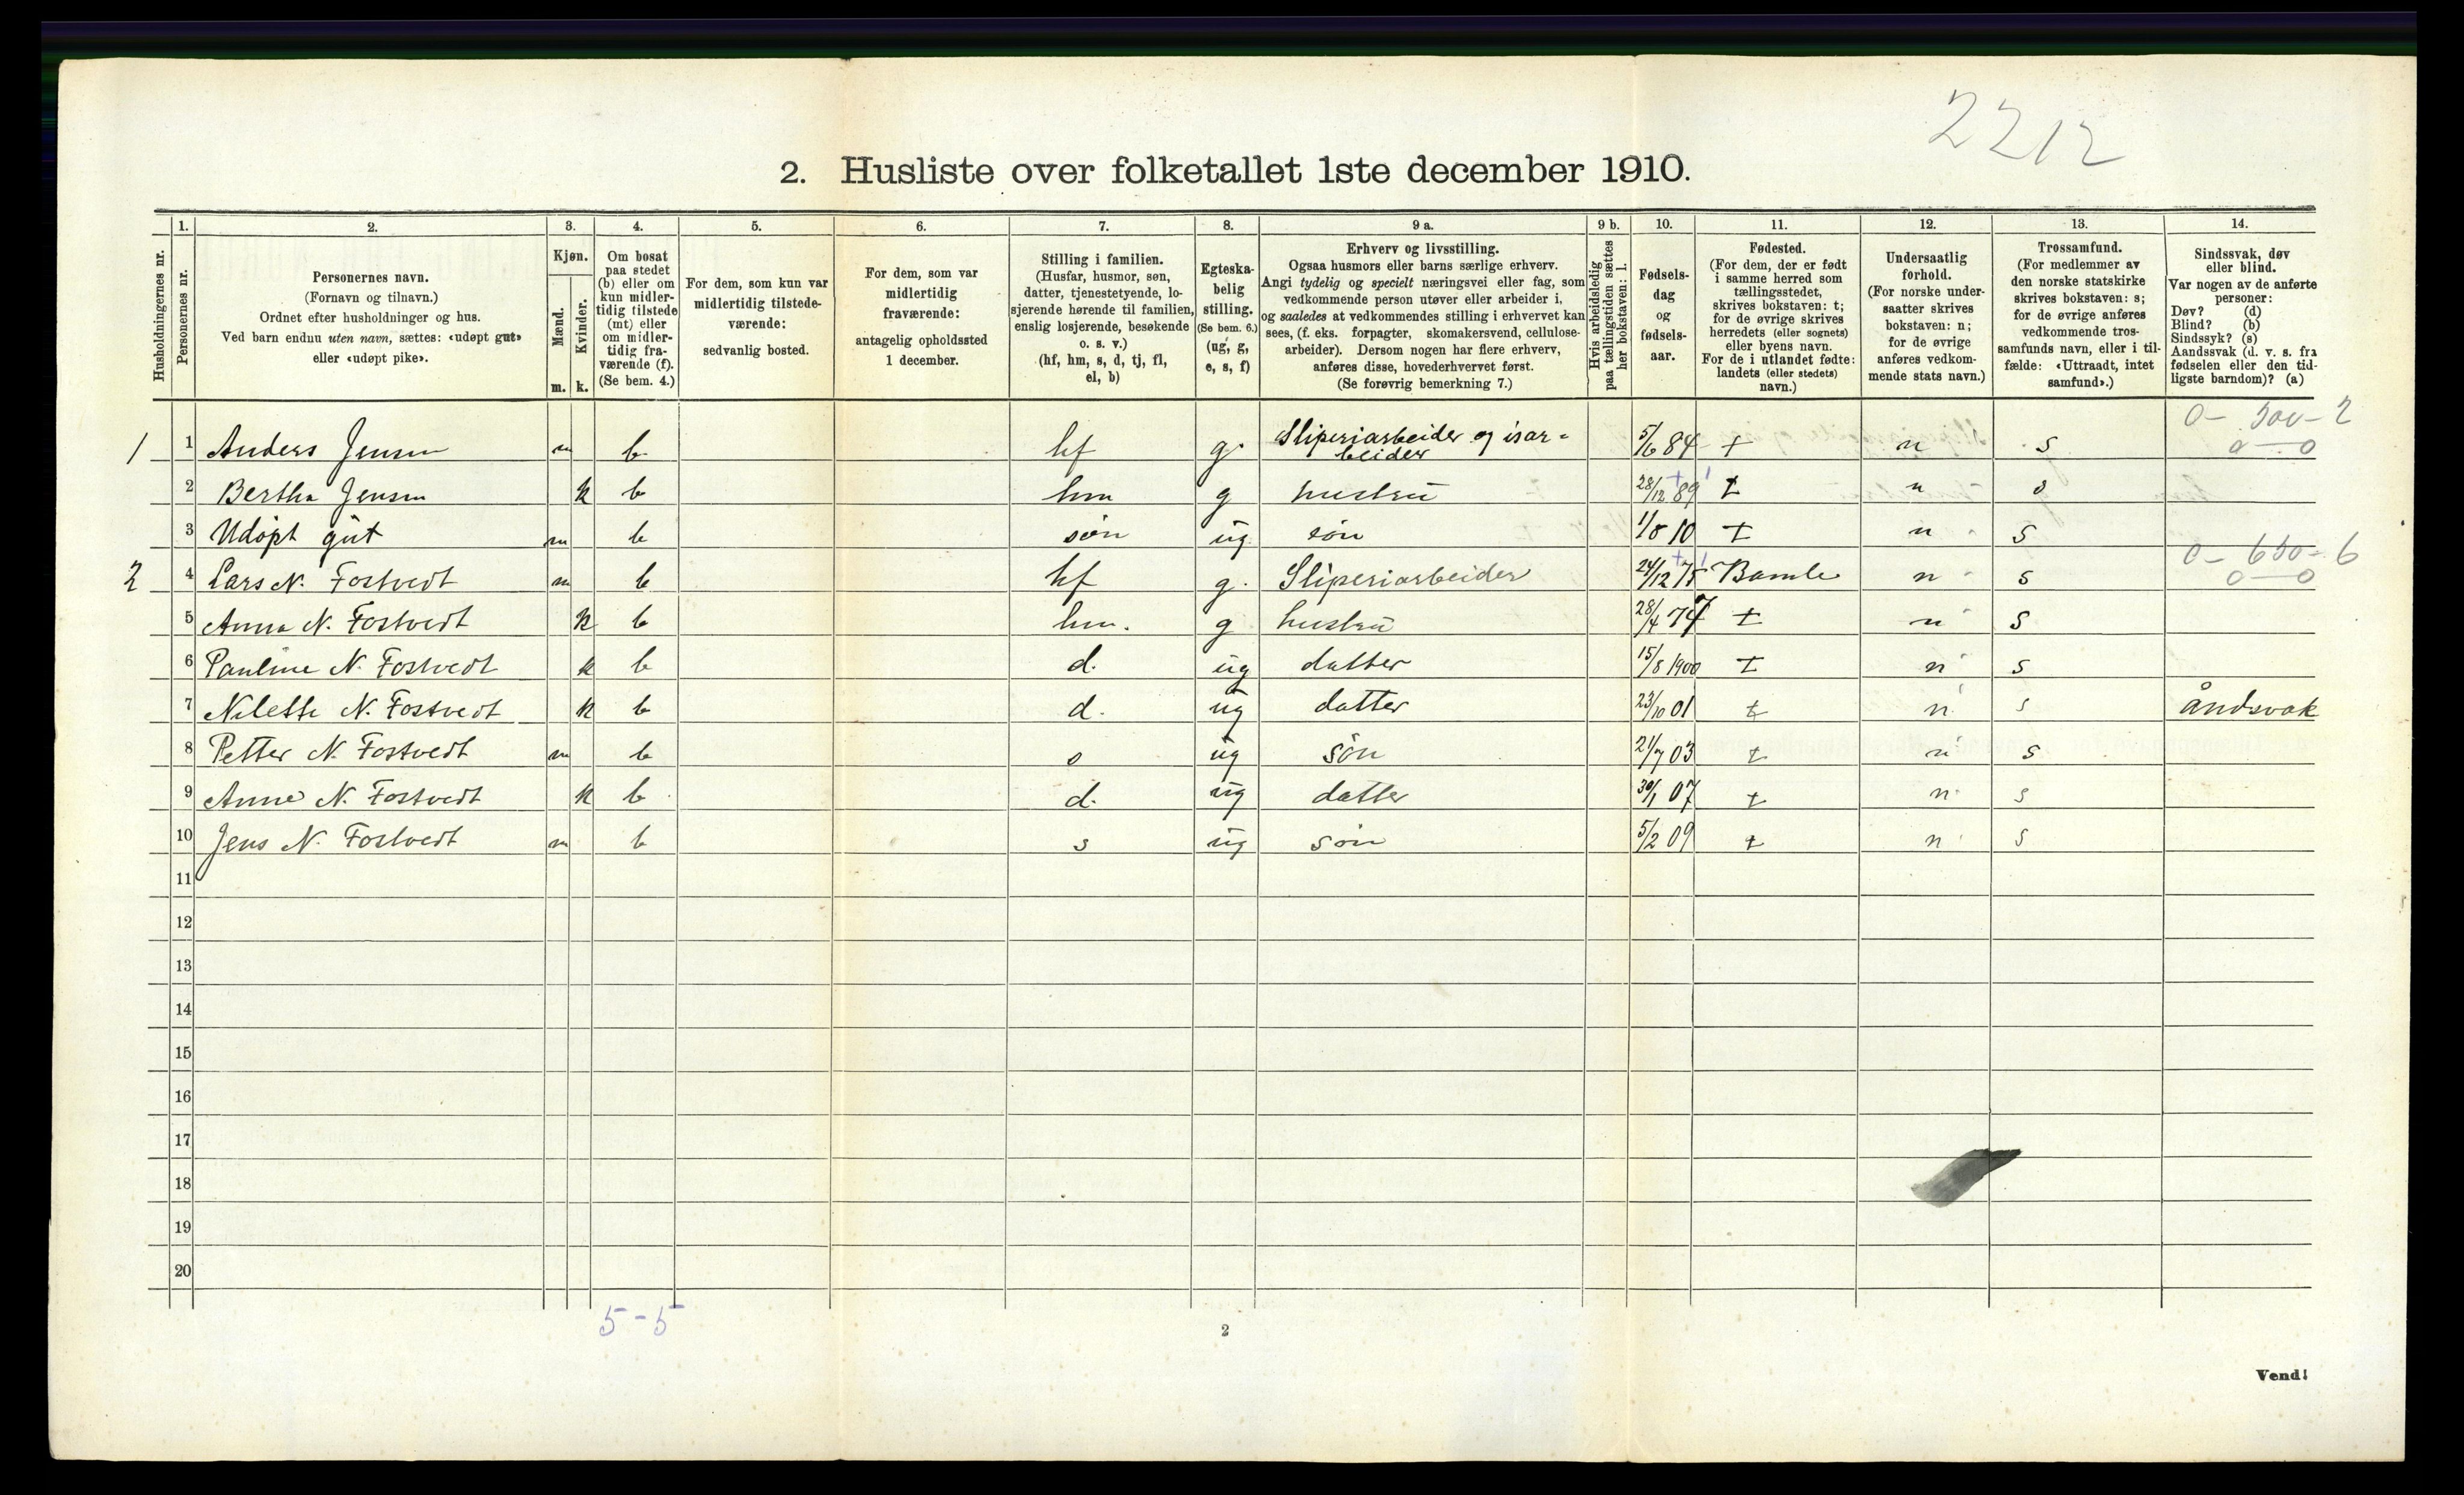 2212
2. Husliste over folketallet 1ste december 1910.
Husholdningernes nr.
1. Personernes nr.
2. Personernes navn. (Fornavn og tilnavn.) Ordnet efter husholdninger og hus. Ved barn endnu uten navn, sættes: «udøpt gut» eller «udøpt pike».
3. Kjøn. Mænd. m. Kvinder. k.
4. Om bosat paa stedet (b) eller om kun midlertidig tilstede (mt) eller om midlertidig fraværende (f). (Se bem. 4.)
5. For dem, som kun var midlertidig tilstedeværende: sedvanlig bosted.
6. For dem, som var midlertidig fraværende: antagelig opholdssted 1 december.
7. Stilling i familien. (Husfar, husmor, søn, datter, tjenestetyende, losjerende hørende til familien, enslig losjerende, besøkende o. s. v.) (hf, hm, s, d, tj, fl, el, b)
8. Egteskabelig stilling. (Se bem. 6.) (ug, g, e, s, f)
9 a. Erhverv og livsstilling. Ogsaa husmors eller barns særlige erhverv. Angi tydelig og specielt næringsvei eller fag, som vedkommende person utøver eller arbeider i, og saaledes at vedkommendes stilling i erhvervet kan sees, (f. eks. forpagter, skomakersvend, cellulosearbeider). Dersom nogen har flere erhverv, anføres disse, hovederhvervet først. (Se forøvrig bemerkning 7.)
9 b. Hvis arbeidsledig paa tællingstiden sættes her bokstaven: l.
10. Fødselsdag og fødselsaar.
11. Fødested. (For dem, der er født i samme herred som tællingsstedet, skrives bokstaven: t; for de øvrige skrives herredets (eller sognets) eller byens navn. For de i utlandet fødte: landets (eller stedets) navn.)
12. Undersaatlig forhold. (For norske undersaatter skrives bokstaven: n; for de øvrige anføres vedkommende stats navn.)
13. Trossamfund. (For medlemmer av den norske statskirke skrives bokstaven: s; for de øvrige anføres vedkommende trossamfunds navn, eller i tilfælde: «Uttraadt, intet samfund».)
14. Sindssvak, døv eller blind. Var nogen av de anførte personer: Døv? (d) Blind? (b) Sindssyk? (s) Aandssvak (d. v. s. fra fødselen eller den tidligste barndom)? (a)
0 - 300 - 2
1 1 Anders Jensen m b hf g. Sliperiarbeider og isarbeider 5/6 84 t n s 0 — 0
2 Bertha Jensen k b hm g hustru 28/12 89 t n s
3 Udøpt gut m b søn ug søn 1/8 10 t n s
0 - 650 - 6
2 4 Lars N. Fostvedt m b hf g. Sliperiarbeider 24/12 75 Bamle n s 0 — 0
5 Anna N. Fostvedt k b hm. g hustru 28/4 77 t n s
6 Pauline N. Fostvedt k b d. ug datter 15/8 1900 t n s
7 Nilette N. Fostvedt k b d. ug datter 23/10 01 t n s åndsvak
8 Petter N. Fostvedt m b s ug søn 21/7 03 t n s
9 Anne N. Fostvedt k b d. ug datter 30/1 07 t n s
10 Jens N. Fostvedt m b s ug søn 5/2 09 t n s
11
12
13
14
15
16
17
18
19
20
5 - 5
2
Vend!